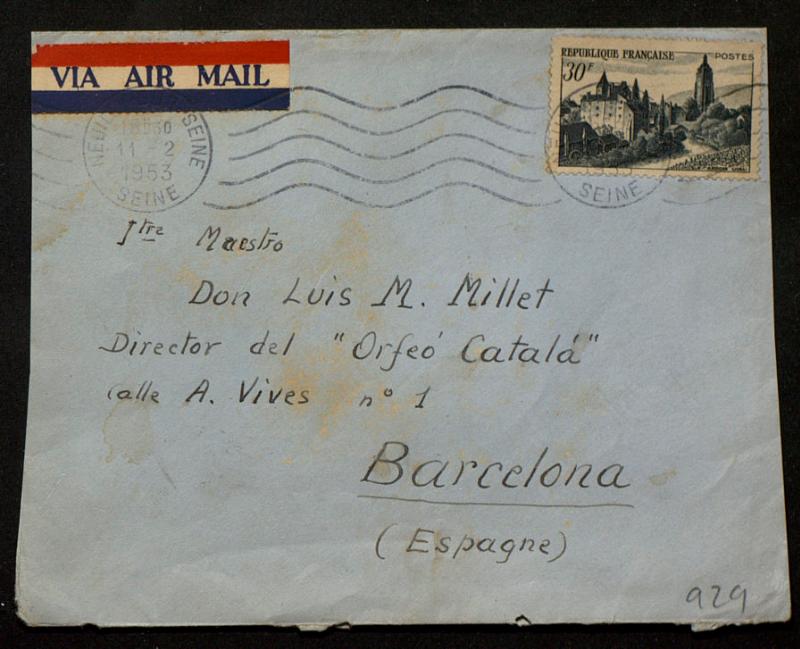 VIA AIR MAIL
REPUBLIQUE FRANÇAISE
POSTES
30F
SEINE
18H30
11-2
1953
SEINE
SEINE
Itre Maestro
Don Luis M. Millet
Director del "Orfeó Catalá"
Calle A. Vives nº 1
Barcelona
(Espagne)
929